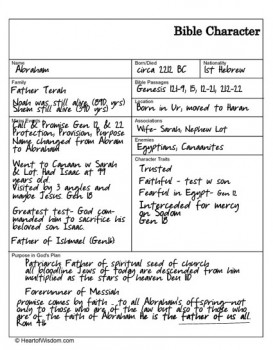 Bible Character
Name
Abraham
Born/Died
circa 2212 BC
Nationality
1st Hebrew
Family
Father Terah
Noah was still alive (890 yrs)
Shem still alive (390 yrs)
Bible Passages
Genesis 12:1-9, 15, 12-21, 21:2-22
Location
Born in Ur, moved to Haran
Major Events
Call & Promise Gen 12, & 22
Protection, Provision, Purpose
Name changed from Abram
to Abraham
Went to Canaan w Sarah
& Lot. Had Isaac at 99
years old.
Visited by 3 angles and
maybe Jesus. Gen 18
Greatest test- God com-
manded him to sacrifice his
beloved son Isaac.
Father of Ishmael (Gen16)
Associations
Wife- Sarah, Nephew Lot
Enemies
Egyptians, Canaanites
Character Traits
Trusted
Faithful - test w son
Fearful in Egypt- Gen 12
Interceded for mercy
on Sodom
Gen 18
Purpose in God's Plan
Patriarch Father of spiritual seed of church
all bloodline Jews of today are descended from him
multipied as the stars of heaven Deu 1:10
Forerunner of Messah
promise comes by faith ...to all Abraham's offspring–not
only to those who are of the law but also to those who
are of the faith of Abraham He is the father of us all.
Rom 4:16
© HeartofWisdom.com